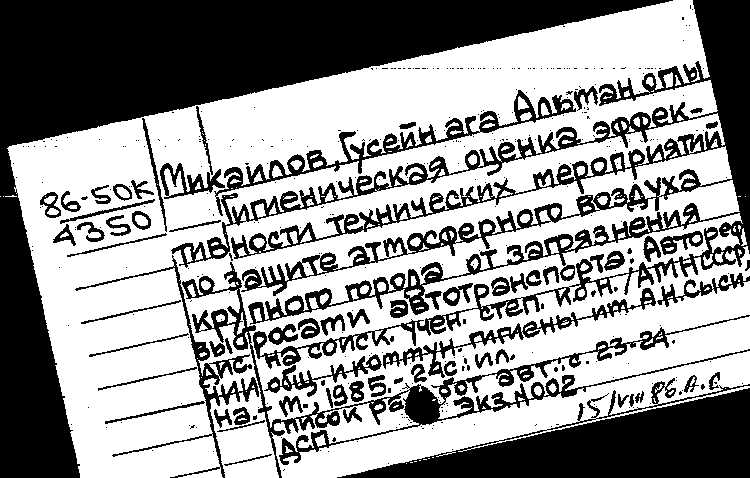 86-50К
4350
Микаилов, Гусейн ага Алътман оглы
Гигиеническая оценка эффек-
тивности технических мероприятий
по защите атмосферного воздуха
крупного города от загрязнения
выбросами автотранспорта: Автореф.
дис. на соиск. учен. степ. к.б.н. / АМН СССР,
НИИ общ. и коммун. гигиены им. А.Н. Сыси-
на. - М., 1985. - 24с.: ил.
список работ авт.: с. 23-24.
Экз. №002.
ДСП.
15/VIII 86.